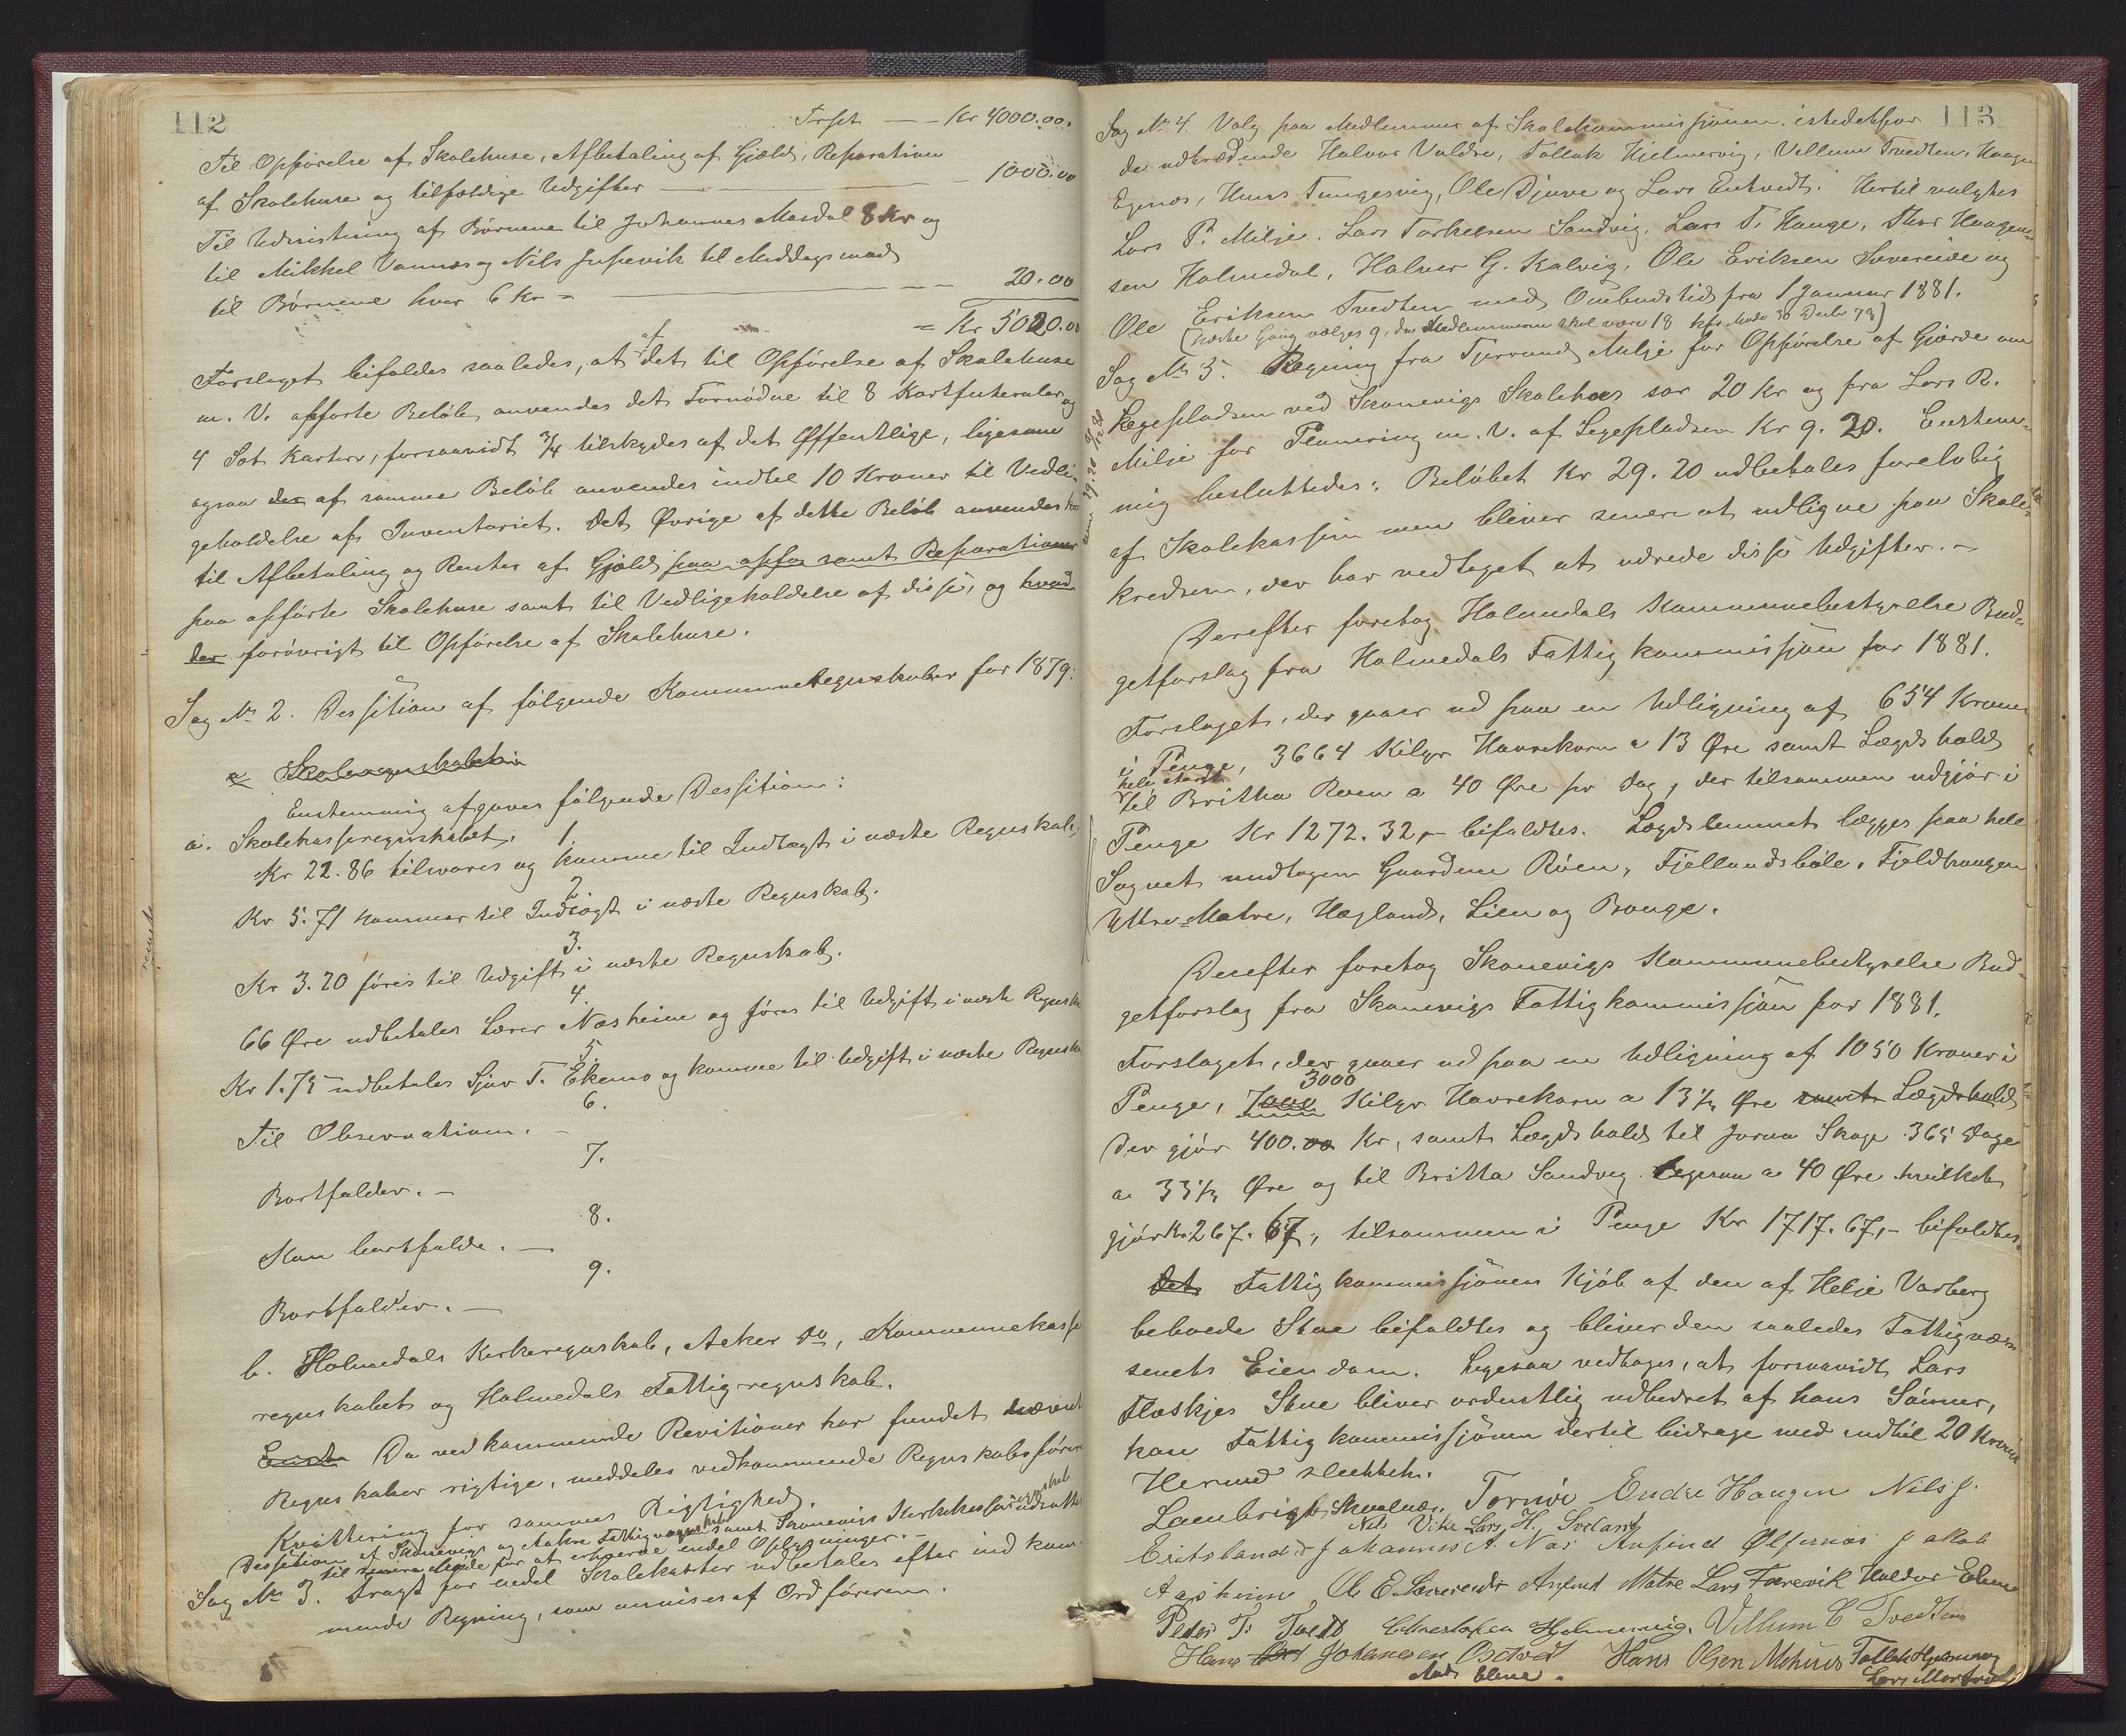 112
Trspt — — Kr 4000.00.
Til Opförelse af Skolehuse, Afbetaling af Gjæld, Reparation
af Skolehuse og tilfældige Udgifter — — — 1000.00
Til Udvisitering af Börnene til Johannes Masdal 8 Kr og
til Mikkel Vannes og Nils til Middagsmad
til Börnene hver 6 Kr = — — — 20.00
= Kr 5020.00
Forslaget bifaldes saaledes, at af det til Opförelse af Skolehuse
m. V. opförte Belöb anvendes det Fornödne til 8 Kartfuteraler og
4 Sæt Karter, forsaavidt 3/4 tilskydes af det Offentlige, ligesom
ogsaa der af samme Belöb anvendes indtil 10 Kroner til Vedli-
geholdelse af Inventariet. Det Øvrige af dette Belöb anvendes
til Afbetaling og Renter af Gjæld paa opfø samt Reparationer
paa opförte Skolehuse samt til Vedligeholdelse af disse, og hvad
der forövrigt til Opförelse af Skolehuse.
Sag No 2. Desition af fölgende Kommuneregnskaber for 1879:
a Skoleregnskabet
Enstemmig afgaves fölgende Desitioner:
a. Skolekasseregnskabet. 1.
Kr 22.86 tilsvares og komme til Indtægt i næste Regnskab,
2.
Kr 5.71 kommer til Indtægt i næste Regnskab.
3.
Kr 3.20 föres til Udgift i næste Regnskab.
4.
66 Øre udbetales Lærer Næsheim og föres til Udgift i næste Regnskab
5.
Kr 1.75 udbetales Sjur T. Ekemo og komme til Udgift i næste Regnskab
6.
Til Observation. —
7.
Bortfalder. —
8.
Kan bortfalde. —
9.
Bortfalder. —
b. Holmedals Kirkeregnskab, Aakre Do, Kommunekasse
regnskabet og Holmedals Fattigregnskab.
Enst Da vedkommende Revisioner har fundet nævnte
Regnskaber rigtige, meddeles vedkommende Regnskabsförere
Kvittering for sammes Rigtighed.
Desition af Skonevigs og Aakre Fattigregnskaber samt Skonevigs Kirkekasseregnskab udsættes
til senere Möde for at erhverve endel Oplysninger. —
Sag No 3. Fragt for endel Skolekarter udbetales efter ind kom-
mende Regning, som anvises af Ordföreren.
113
Sag No 4. Valg paa Medlemmer af Skolekommissjonen istedetfor
de udtrædende Halvor Valdre, Tollak Hjelmervig, Villum Tvedten, Haagen
Egenæs, Hans Tungesvig, Ole Djuve og Lars Entvedt. Hertil valgtes
Lars P. Milje. Lars Torkelsen Sandvig, Lars T. Hauge, Thor Haagen-
sen Holmedal, Halvor G. Kalvig, Ole Eriksen Severeide og
Ole Eriksen Tvedten med Ombudstid fra 1 Januar 1881.
(næste Gang vælges 9, da Medlemmerne skal være 18 kfr Möde 30 Decbr 79)
Sag No 5. Regning fra Tjerrand Milje for Opförelse af Gjærde om
Legepladsen ved Skonevigs Skolehus stor 20 Kr og fra Lars R.
Milje for Planering m. V. af Legepladsen Kr 9.20. Enstem-
mig besluttedes: Belöbet Kr 29.20 udbetales forelöbig
af Skolekassen men bliver senere at udligne paa Skole-
kredsen, der har vedtaget at udrede disse Udgifter. —
Derefter foretog Holmedals Kommunebestyrelse Bud-
getforslag fra Holmedals Fattigkommissjon for 1881.
Forslaget, der gaaer ud paa en Udligning af 654 Kroner
i Penge, 3664 Kilgr Havrekorn a 13 Øre samt Lægdshold
hele Aaret
til Britha Roen a 40 Øre pr Dag, der tilsammen udgjör i
Penge Kr 1272.32, — bifaldtes. Lægdslemmet lægges paa hele
Sognet undtagen Gaardene Röen, Fjellandsböle, Fjeldhaugen
Ytre-Matre, Hægland, Lien og Bauge.
Derefter foretog Skonevigs Kommunebestyrelse Bud-
getforslag fra Skonevigs Fattigkommissjon for 1881.
Forslaget, der gaaer ud paa en Udligning af 1050 Kroner i
3000
Penge, 7000 Kilgr Havrekorn a 13 1/3 Øre samt Lægdshold
der gjör 400.00 Kr, samt Lægdshold til Joran Skage 365 Dage
a 33 1/3 Øre og til Britta Sandvig ligesaa a 40 Øre hvilket
gjör Kr 267.67, tilsammen i Penge Kr 1717.67, — bifaldtes.
Det Fattigkommissjonens Kjöb af den af Helje Varberg
beboede Stue bifaldtes og bliver den saaledes Fattigvæs-
senets Eiendom. Ligesaa vedtages, at forsaavidt Lars
Flaskjes Stue bliver ordentlig udbedret af hans Sönner,
kan Fattigkommissjonen dertil bidrage med indtil 20 Kroner
Hermed sluttet.
Lambrigt Skaalnæs. Tornöe Endre Haugen Nils J.
Nils Vike Lars H. Sveland
Eritsland Johannes A. Næs Anfind Ølfernæs Jakob
Aasheim Ole E. Severeide Anfind Matre Lars Færevik Haldor Ebne
Peder T. Tvedt Christofer Hjelmervig. Villum C Tvedten
Hans Johannesen Østved Hans Olsen Mehus Tollak Hjelmervig
Aad Ebne. Lars